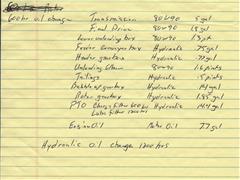 600 hr. oil change Transmission 80w90 5 gal
Final Drive 80w90 1.8 gal
Lower unloading box 80w90 1.3 pt
Feeder Conveyor box Hydraulic .75 gal
Header gearbox Hydraulic .77 gal
Unloading Elbow 80w90 1.6 pints
Tailings Hydraulic .5 pints
gearbox Hydraulic 1.4 gal
Rotor gearbox Hydraulic 1.85 gal
PTO Change filter 600 hr Hydraulic 14.4 gal
Later filter 1200 hrs
Engine Oil Motor Oil 7.7 gal
Hydraulic oil change 1200 hrs